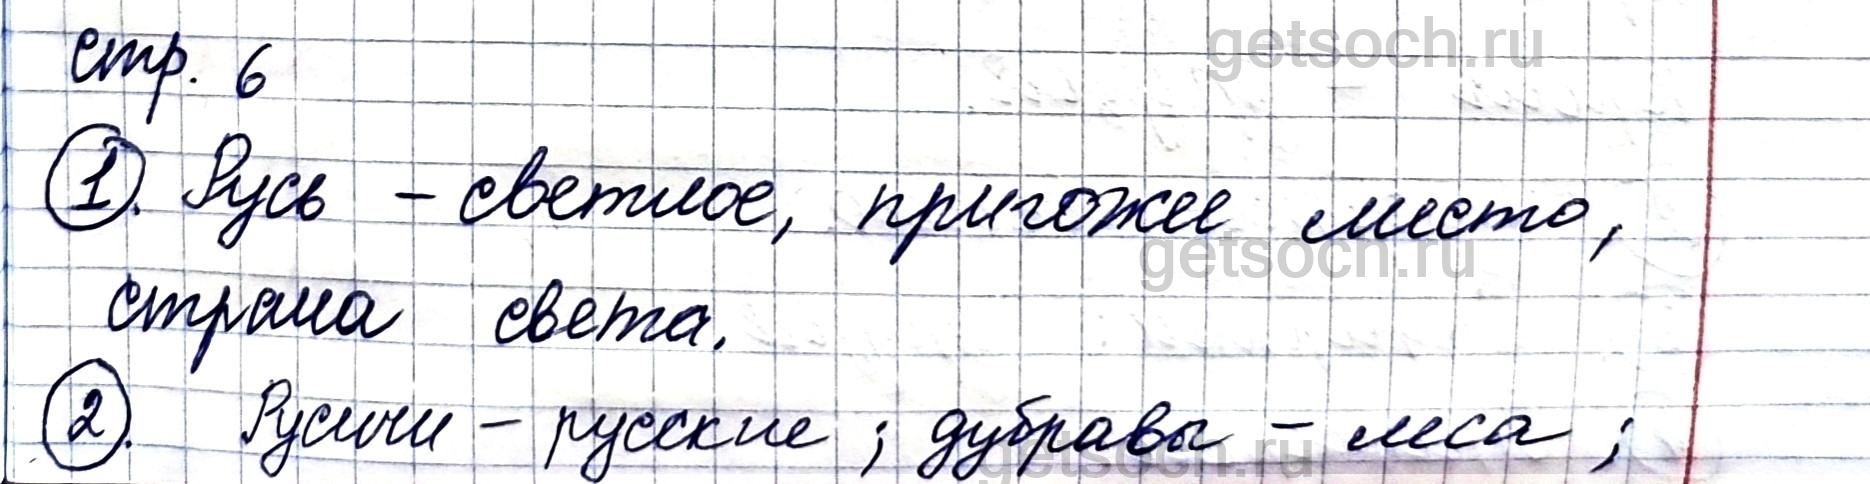 getsoch.ru
стр. 6
1. Русь - светлое, пригожее место,
getsoch.ru
страна света.
2. Русичи - русские; дубравы - леса;
getsoch.ru